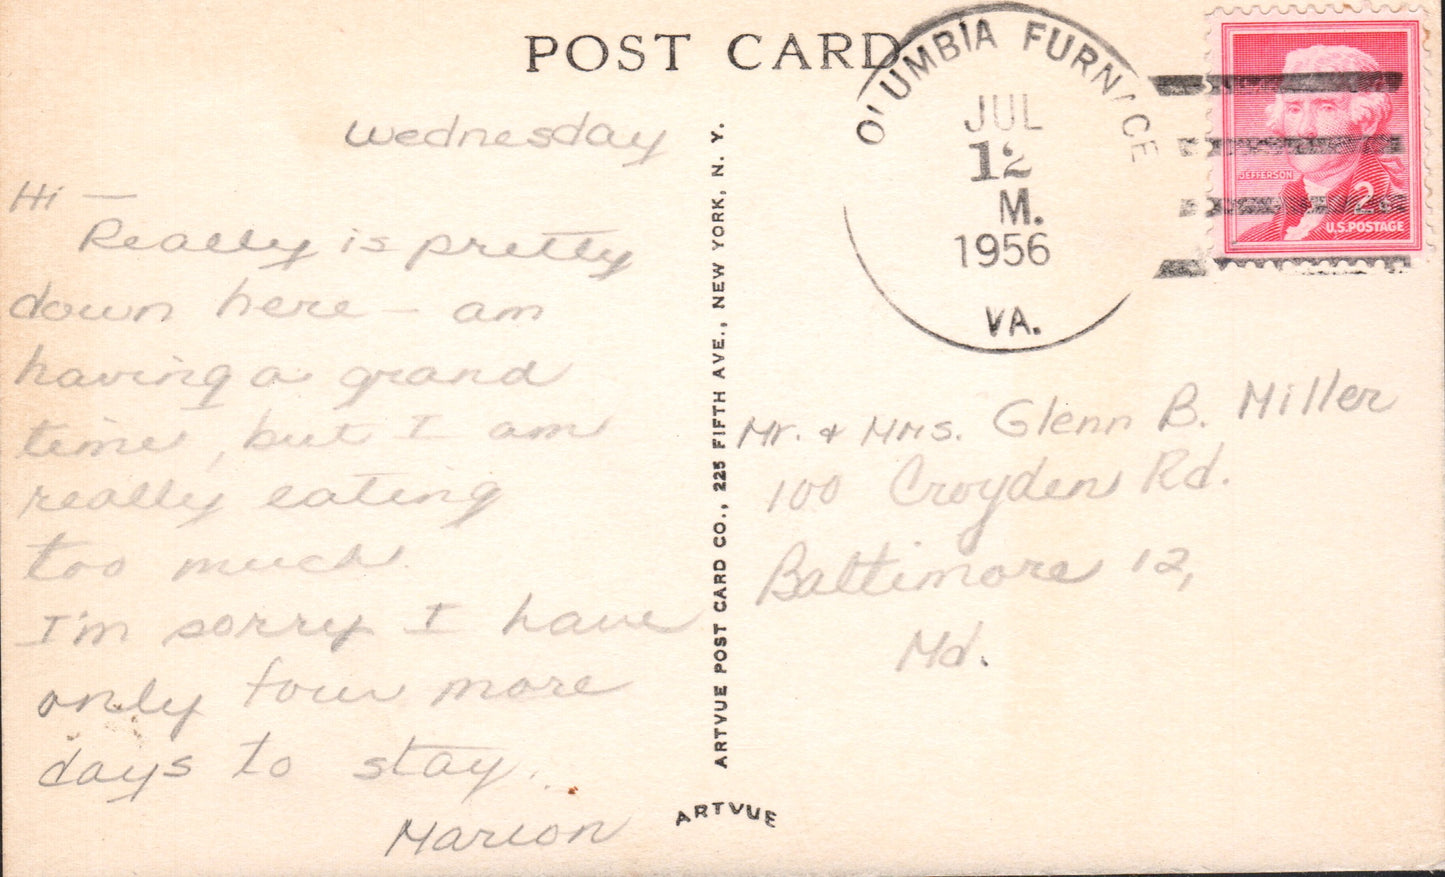 POST CARD
Wednesday
Hi —
Really is pretty
down here — am
having a grand
time, but I am
really eating
too much.
I'm sorry I have
only four more
days to stay.
Marion
ARTVUE POST CARD CO., 225 FIFTH AVE., NEW YORK, N. Y.
ARTVUE
OLUMBIA FURNACE
JUL
12
M.
1956
VA.
JEFFERSON
2
U.S. POSTAGE
Mr. & Mrs. Glenn B. Miller
100 Croyden Rd.
Baltimore 12,
Md.